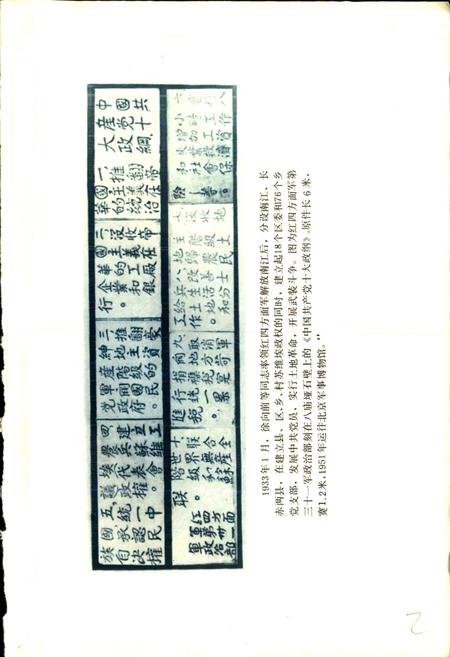 中國共
産党十
大政綱
一、推翻帝
國主義在
華的統治
二、没收帝
國主義在
華的工厰
企業和銀
行。
三、推翻豪
紳地主資
産階級的
軍閥國民
党政府。
四、建立工
農兵蘇維
埃代表會
議政權。
五、統一中
國承認民
族自決權
六、實行八
小時工作
增加工資
失業救濟
和社會保
險
七、没收地
主階級土
地歸農民
八、改善士
兵生活分
給土地和
工作。
九、取消軍
閥地方苛
捐雜稅實
行統一累
進稅。
十、聯合全
世界無産
階級和蘇
聯。
红四方面
軍第卅一
軍政治部
1933年1月,徐向前等同志率领红四方面军解放南江后,分设南江、长
赤两县,在建立县、区、乡、村苏维埃政权的同时,建立起18个区委和76个乡
党支部,发展中共党员,实行土地革命,开展武装斗争。图为红四方面军第
三十一军政治部刻在八庙垭石壁上的《中国共产党十大政纲》。原件长6米,
宽1.2米,1951年运往北京军事博物馆。
2